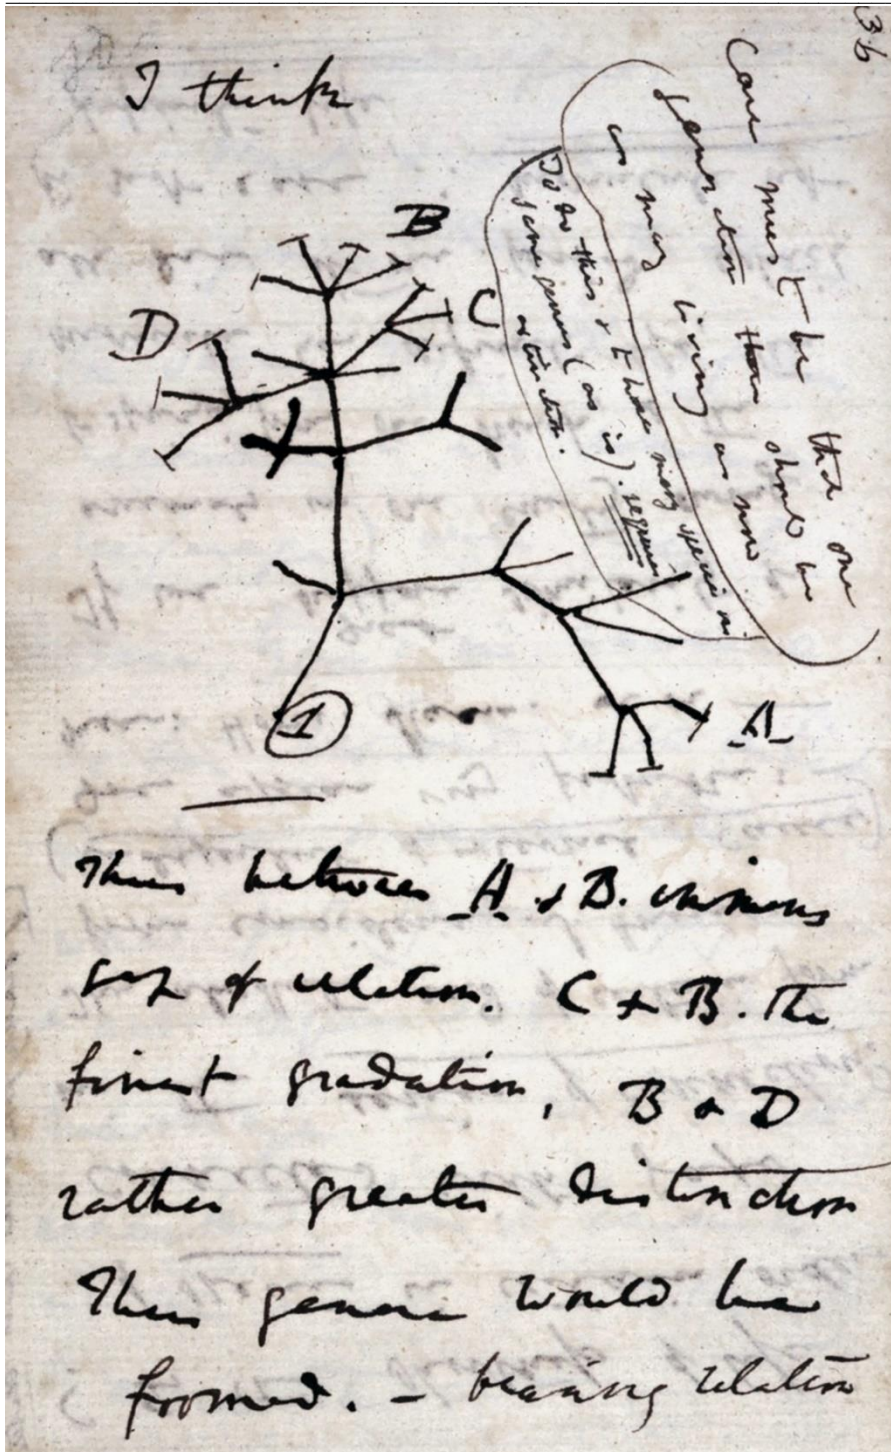 36
I think
Case must be that one
generation then should be
as many living as now
To do this & to have many species in
same genus (as is). requires
extinction.
B
C
D
A
1
Thus between A & B. immens
gap of relation. C & B. The
finest gradation, B & D
rather greater distinction
Thus genera would be
formed. — bearing relation